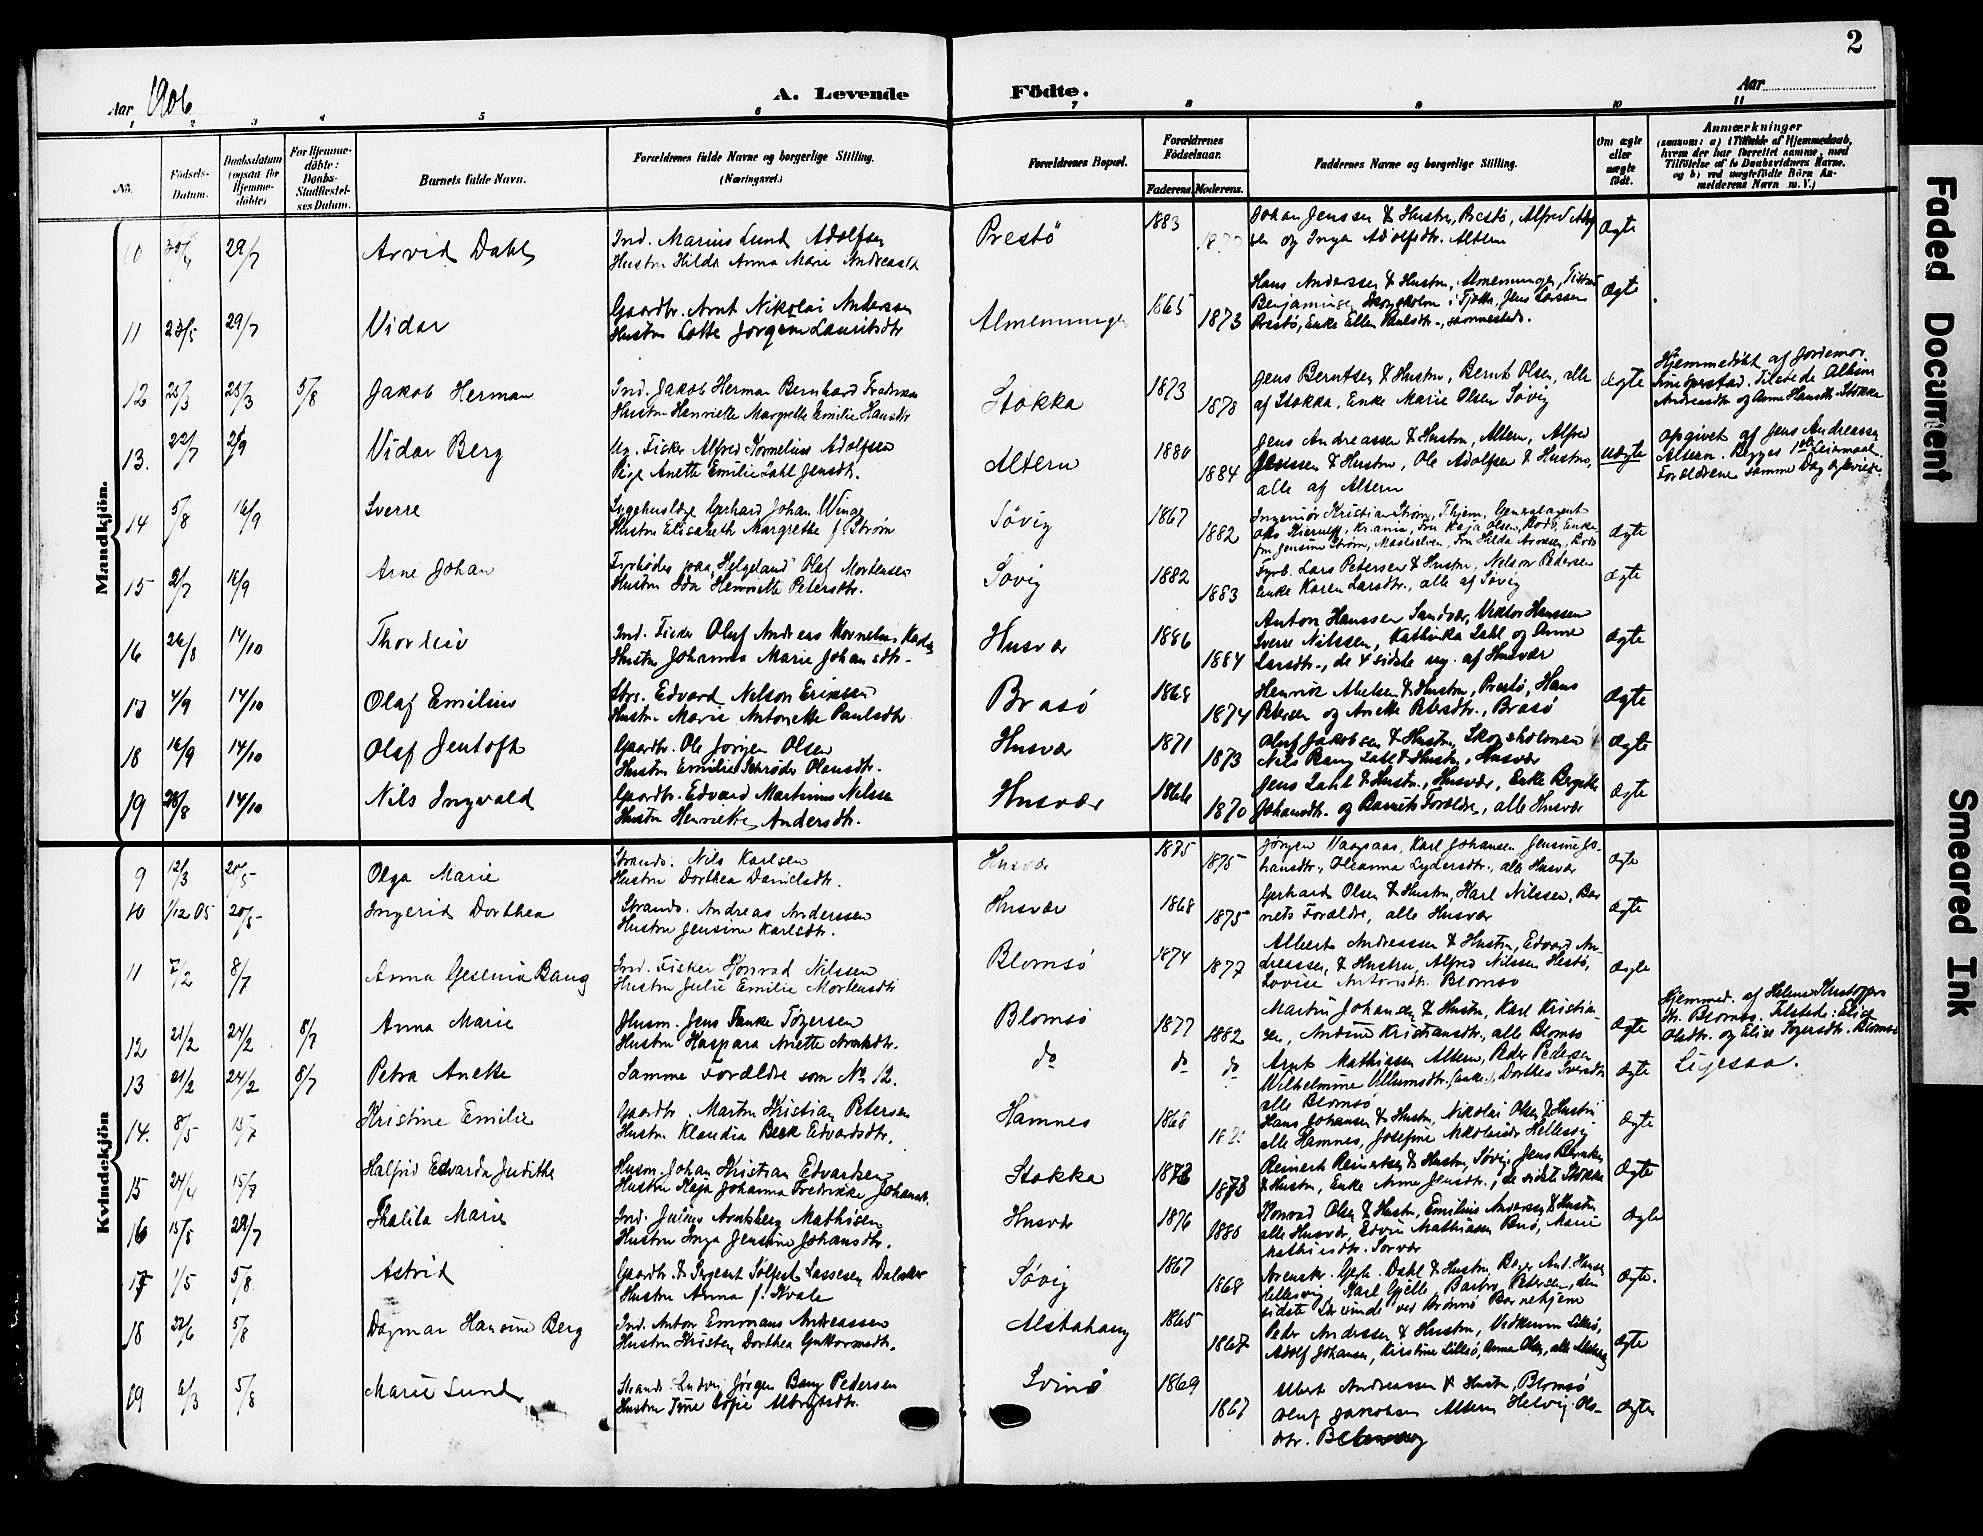 2
Aar 1906
A. Levende Födte.
Aar
1 2 3 4 5 6 7 8 9 10 11
No.
Födsels-Datum.
Daabsdatum (ogsaa for Hjemmedöbte)
For Hjemmedöbte: Daabs-Stadfæstelses Datum.
Barnets fulde Navn.
Forældrenes fulde Navne og borgerlige Stilling. (Næringsvei.)
Forældrenes Bopæl.
Forældrenes Födselsaar.
Faderens. Moderens.
Faddernes Navne og borgerlige Stilling.
Om ægte eller uægte födt.
Anmærkninger
(saasom: a) i Tilfælde af Hjemmedaab, hvem der har forrettet samme, med Tilföielse af to Daabsvidners Navne, og b) ved uægtefödte Börn Anmelderens Navn m. V.)
Mandkjön.
10 29/7 Arvid Dahl
Ind. Marius Lund Adolfsen
Hustru Hilda Anna Marie Andreasdt
Prestö 1883
Johan Jenssen & Hustru, Prestö, Alfred
og Inga Adolfsdtr. Altern
Ægte
11 23/5 29/7 Vidar
Gaardbr. Arnt Nikolai Anderssen
Hustru Lotte Jörgine Lauritsdtr
Almenningen 1865 1873
Hans Anderssen & Hustru, Almenningen,
Benjaminsen Skogsholm i Tjötta, Jens Larssen
Prestö, Enke Ellen Paulsdtr., sammesteds.
Ægte
12 25/3 25/3 5/8 Jakob Herman
Ind. Jakob Herman Bernhard Fredriksen
Hustru Henriette Margrethe Emilie Hansdtr
Stokka 1873 1878
Jens Berntsen & Hustru, Bernt Olsen, alle
af Stokka. Enke Marie Olsen Søvig
Ægte
Hjemmedöbt af Jordemor
Tilstede Albin
Andreasdtr og Anne Hansdtr Stokka
13. 22/7 2/9 Vidar Berg
Ug. Fisker Alfred Kornelius Adolfsen
Pige Anette Emilie Zahl Jensdtr.
Altern 1880 1884
Jens Andreassen & Hustru, Altern, Alfred
Jenssen & Hustru, Ole Adolfsen & Hustru,
alle af Altern
uægte
Opgivet af Jens Andreassen
Altern. Begges 1ste Leiermaal.
Forældrene samme Dag ægteviede.
14 5/8 16/9 Sverre
Sygehuslæge Gerhard Johan Winge
Hustru Elisabeth Margrethe f. Strøm
Søvig 1867 1882
Ingeniör Kristian Strøm, Thjem, Generalagent
Kierulf, Krania, Fru Kaja Olsen, Bodö, Enke
fru Jensine Strøm, Maalselven, Fru Hilda Bodö
Ægte
15 2/7 16/9 Arne Johan
Fyrböder paa "Helgeland" Olaf Mortensen
Hustru Ida Henriette Petersdtr.
Søvig 1882 1883
Fyrb. Lars Petersen & Hustru, Nelson Pedersen
Enke Karen Larsdtr., alle af Søvig
Ægte
16 26/8 14/10 Thorleiv
Ind. Fisker Oluf Andreas Kornelius
Hustru Johanna Marie Johansdtr.
Husvær 1886 1884
Anton Hanssen Sandvær, Viktor Hanssen
Sverre Nilssen, Kathinka Zahl og Anne
Larsdtr., de 4 sidste ug. af Husvær
Ægte
17 4/9 14/10 Olaf Emilius
Edvard Nelson Eriksen
Hustru Marie Antonette Paulsdtr
Brasö 1868 1874
Henrik Abelsen & Hustru, Prestö, Hans
Petersen og Anette Petersdtr., Brasö
Ægte
18 16/9 14/10 Olaf Jentoft
Gaardbr. Ole Jörgen Olsen
Hustru Emilie Schrøder Olausdtr.
Husvær 1871 1873
Oluf Jakobsen & Hustru, Skogsholmen
Nils Bang Zahl & Hustru, Husvær
Ægte
19 28/8 14/10 Nils Ingvald
Gaardbr. Edvard Martinus Nilsen
Hustru Henriette Andersdtr.
Husvær 1866 1870
Jens Zahl & Hustru, Husvær, Enke Birgitte
Johansdtr. og Barnets Forældre, alle Husvær
Ægte
Kvindekjön
9 12/3 20/5 Olga Marie
Strands. Nils Karlsen
Hustru Dorthea Danielsdtr.
Husvær 1875 1875
Jörgen Vaagaas, Karl Johansen Jensine Jo-
hansdtr., Oleanna Lydersdtr., alle Husvær
Ægte
10 1/12 05 20/5 Ingerid Dorthea
Strands. Andreas Anderssen
Hustru Jensine Karlsdtr.
Husvær 1868 1875
Gerhard Olsen & Hustru, Karl Nilssen, Bar-
nets Forældre, alle Husvær
Ægte
11 7/2 8/7 Anna Gesenia Bang
Ind. Fisker Konrad Nilssen
Hustru Julie Emilie Mortensdtr
Blomsö 1874 1877
Albert Andreassen & Hustru, Edvard An-
dreassen, & Hustru, Alfred Nilssen Hestö,
Lovise Antonsdtr. Blomsö
Ægte
12 21/2 24/2 8/7 Anna Marie
Husm. Jens Tanke Tögersen
Hustru Kaspara Anette Arntsdtr.
Blomsö 1877 1882
Martin Johansen & Hustru, Karl Kristian-
sen, Andrine Kristiansdtr., alle Blomsö
Ægte
Hjemmed. af Helene Kristoffers
dtr. Blomsö. Tilstede: Elise
Olsdtr. og Elise Togersdtr. Blomsö
13 21/2 24/2 8/7 Petra Anette
Samme Forældre som No 12.
do do do
Arnt Mathiassen Altern, Peder Pedersen
Wilhelmine Villumsdtr. (enke), Dorthea Iversdtr
alle Blomsö
Ægte
Ligesaa.
14. 8/5 15/7 Kristine Emilie
Gaardbr. Martin Kristian Petersen
Hustru Klaudia Beck Edvardsdtr.
Hamnes 1868
Hans Johansen & Hustru, Nikolai Olsen & Hustru
alle Hamnes, Josefine Nikolaisdtr Hellesvig
Ægte
15 24/4 15/7 Halfrid Edvarda Judithe
Husm. Johan Kristian Edvardsen
Hustru Kaja Johanna Fredrikke Johansdt.
Stokka 1873 1873
Reinert Reinertsen & Hustru, Søvig, Jens Berntsen
& Hustru, Enke Anne Jensdtr., de sidste Stokka
Ægte
16 15/5 29/7 Thalila Marie
Ind. Julius Arntsberg Mathisen
Hustru Inga Jensine Johansdtr.
Husvær 1876 1880
Konrad Olsen & Hustru, Emilius Anderssen & Hustru
alle Husvær, Edvin Mathiassen Brasö, Marie
Mathisdtr. Sorvær
Ægte
17 1/5 5/8 Astrid
Gaardbr. & Sergeant Solfest Lassesen Dalsaker
Hustru Anna f. Kvale
Søvig 1867 1868
Dahl & Hustru, Roger And. Hansen
Hellesvig, Karl Gjelle Barbro Petersen, den
sidste ved Brönnö Barnehjem
Ægte.
18 22/6 5/8 Dagmar Hansine Berg
Ind. Anton Emmaus Andreassen
Hustru Kirsten Dorthea Guttormsdtr.
Alstahaug 1865 1867
Peder Andersen & Hustru, Vidkunn Lillesö,
Adolf Johansen, Kirstine Lillesö, Anna Olsen, alle
Ægte
19 6/3 5/8 Marie Lund
Strands. Ludvig Jörgen Bang Pedersen
Hustru Trine Sofie Albrigtsdtr.
Svinö 1869 1867
Albert Andreassen & Hustru, Blomsö
Oluf Jakobsen Altern Helvig Ols-
dtr.
Ægte
Faded Document
Smeared Ink